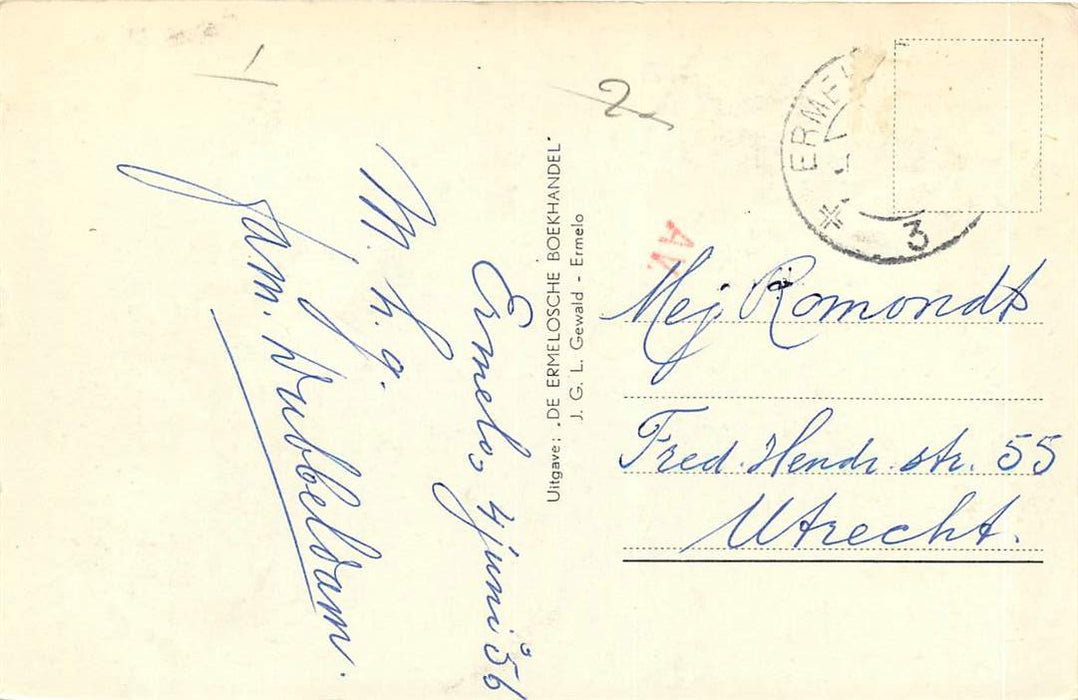 1
2
Ermelo, 4 juni '56
M. h. g.
Fam. Dubbeldam.
Uitgave: „DE ERMELOSCHE BOEKHANDEL"
J. G. L. Gewald - Ermelo
AV.
ERMEL
3
Mej Romondt
Fred. Hendr. str. 55
Utrecht.